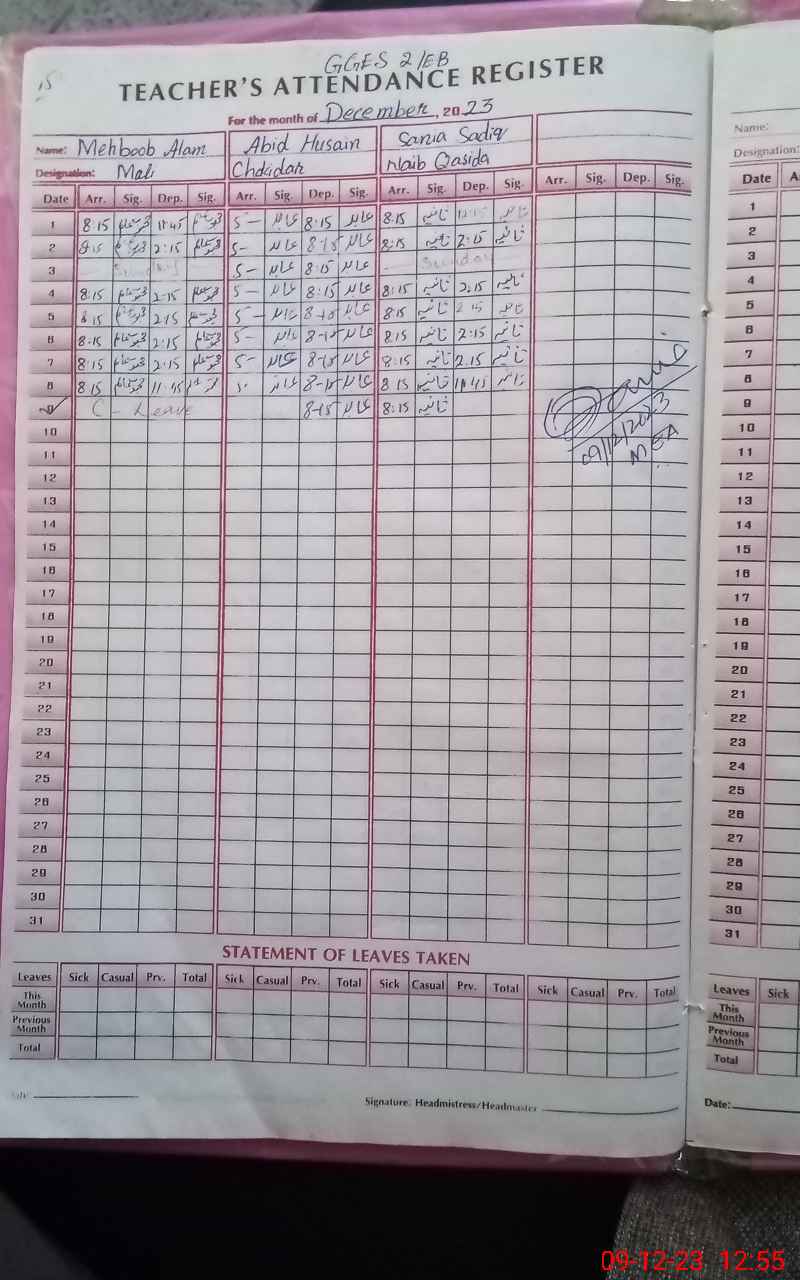 15
GGES 2/EB
TEACHER'S ATTENDANCE REGISTER
For the month of December, 2023
Name: Mehboob Alam Abid Husain Sania Sadiq
Designation: Mali Naib Qasida
Date Arr. Sig. Dep. Sig. Arr. Sig. Dep. Sig. Arr. Sig. Dep. Sig. Arr. Sig. Dep. Sig.
1 8:15 5 - 8:15 عابد 8:15 ثانیہ
2 8:15 2:15 5 - عابد 8-15 عابد 8:15 ثانیہ 2:15 ثانیہ
3 Sunday 5 - عابد 8:15 عابد Sunday
4 8:15 2:15 5 - عابد 8:15 عابد 8:15 ثانیہ 2.15 ثانیہ
5 8:15 2:15 5 - عابد 8-15 عابد 8:15 ثانیہ 2 15 ثانیہ
6 8:15 2:15 5 - عابد 8-15 عابد 8:15 ثانیہ 2:15 ثانیہ
7 8:15 2:15 5 - عابد 8-15 عابد 8:15 ثانیہ 2.15 ثانیہ
8 8:15 11:45 عابد 8-15 عابد 8 15 ثانیہ 11:45 ثانیہ
9 C - Leave 8-15 عابد 8:15 ثانیہ
09/12/2023
MEA
10
11
12
13
14
15
16
17
18
19
20
21
22
23
24
25
26
27
28
29
30
31
STATEMENT OF LEAVES TAKEN
Leaves Sick Casual Prv. Total Sick Casual Prv. Total Sick Casual Prv. Total Sick Casual Prv. Total
This Month
Previous Month
Total
Signature: Headmistress/Headmaster
Name:
Designation:
Date
1
2
3
4
5
6
7
8
9
10
11
12
13
14
15
16
17
18
19
20
21
22
23
24
25
26
27
28
29
30
31
Leaves Sick
This Month
Previous Month
Total
Date:
09-12-23 12:55